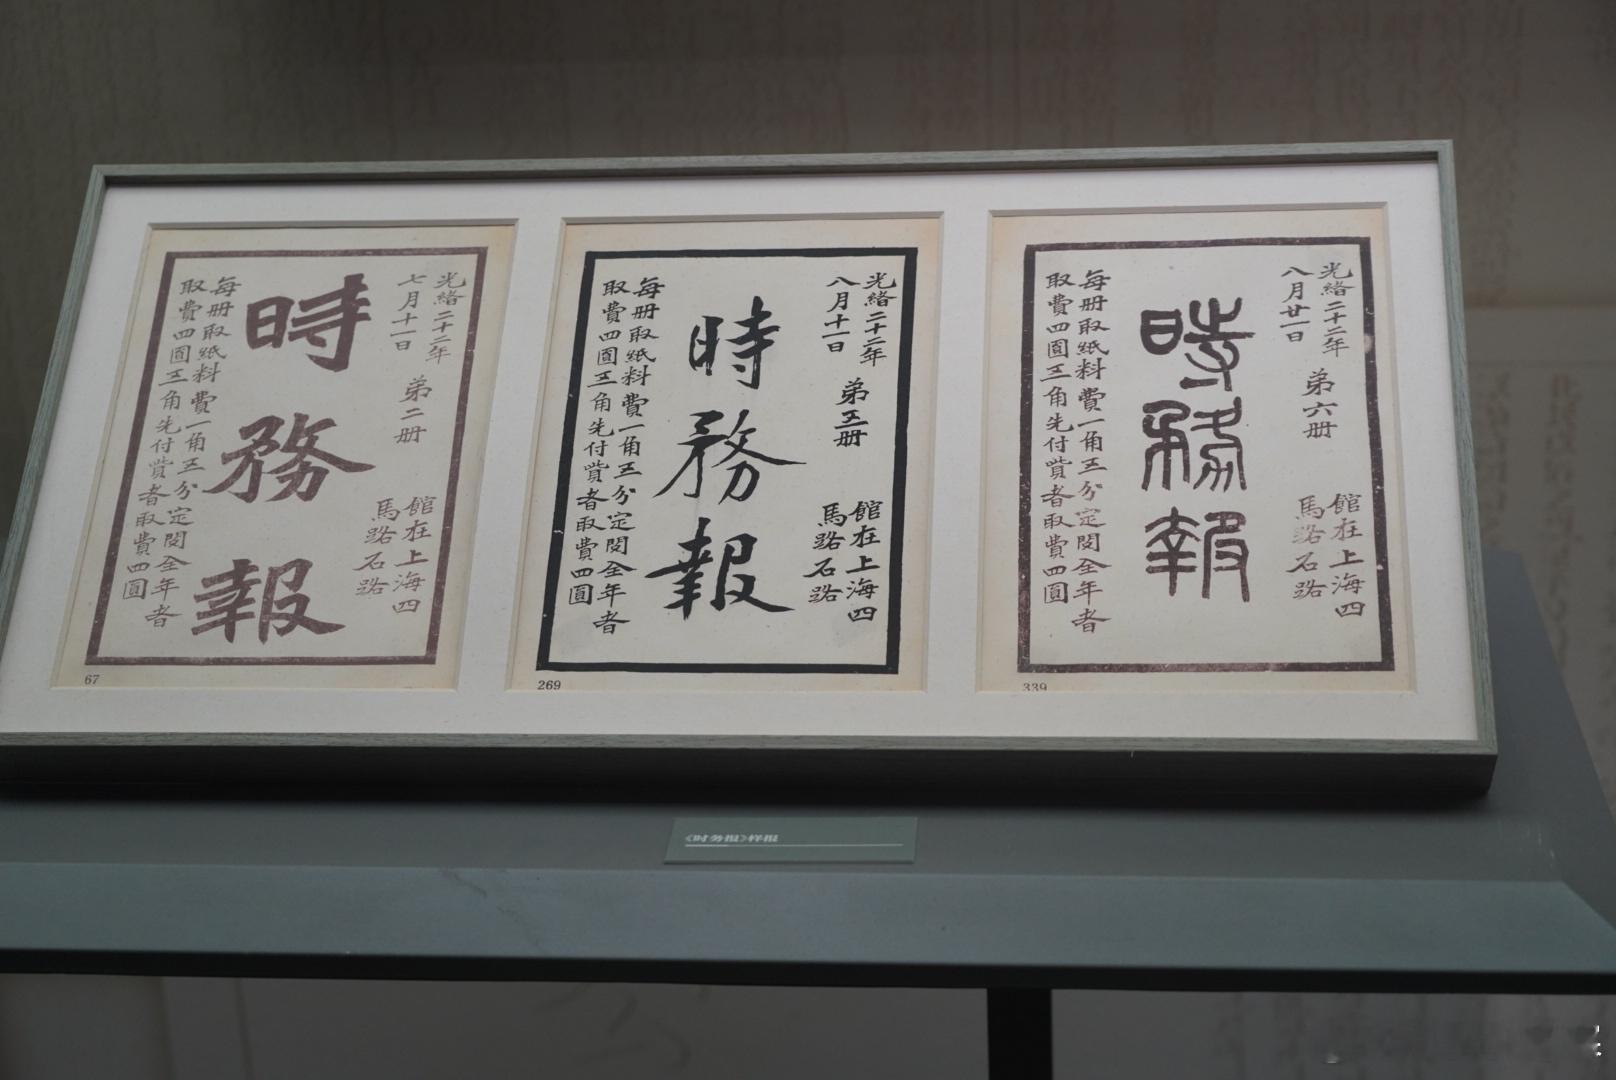 光緒二十二年
七月十一日
弟二册
館在上海四
馬路石路
時務報
每册取紙料費一角五分定閱全年者
取費四圓五角先付貲者取費四圓
67
光緒二十二年
八月十一日
弟五册
館在上海四
馬路石路
時務報
每册取紙料費一角五分定閱全年者
取費四圓五角先付貲者取費四圓
269
光緒二十二年
八月廿一日
弟六册
館在上海四
馬路石路
時務報
每册取紙料費一角五分定閱全年者
取費四圓五角先付貲者取費四圓
339
《时务报》样报